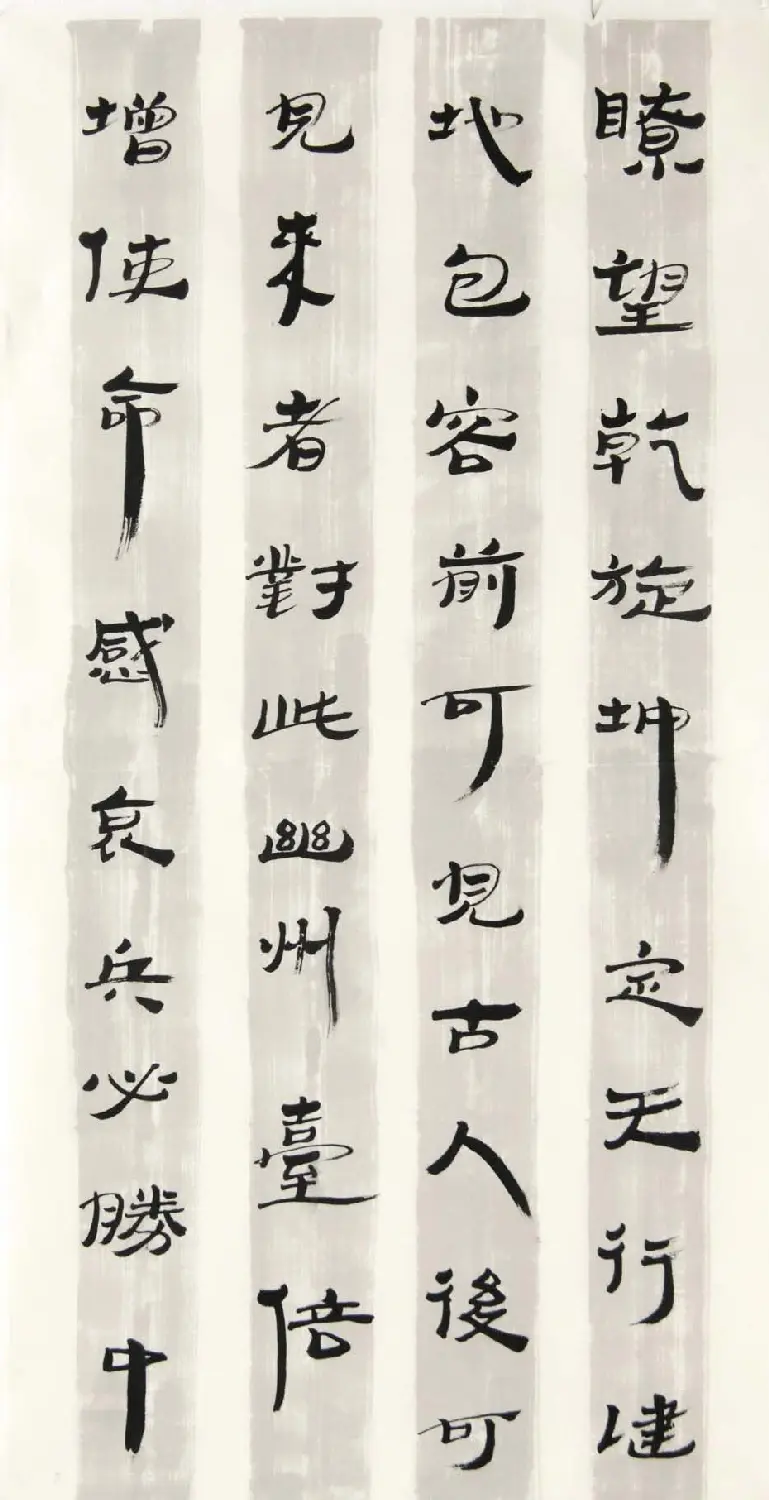 瞭望乾旋坤定天行健
地包容前可見古人後可
見來者對此幽州臺倍
增使命感哀兵必勝中